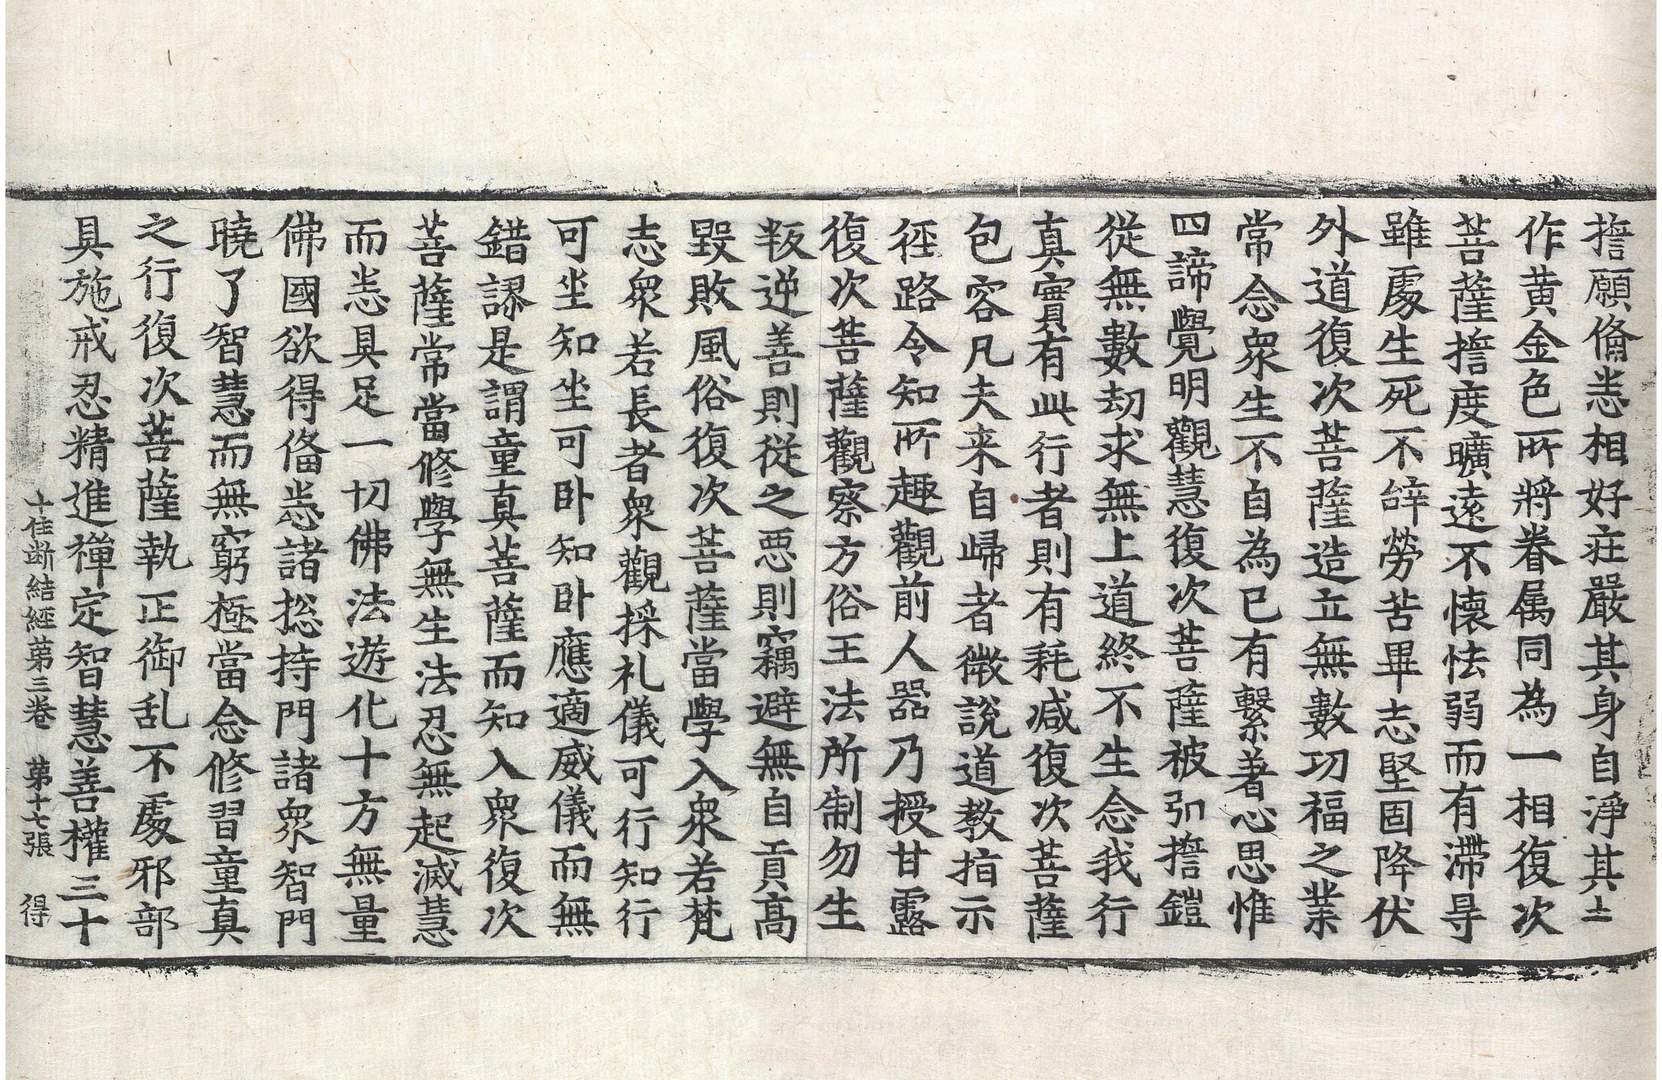 擔願俻恙相好荘嚴其身自淨其土
作黄金色所將眷属同為一相復次
菩薩擔度曠遠不懷怯弱而有滯㝵
雖處生死不辝勞苦畢志堅固降伏
外道復次菩薩造立無數功福之業
常念衆生不自為已有繫著心思惟
四諦覺明觀慧復次菩薩被弘擔鎧
從無數劫求無上道終不生念我行
真實有此行者則有耗減復次菩薩
包容凡夫来自歸者微說道教指示
徑路令知所趣觀前人器乃授甘露
復次菩薩觀察方俗王法所制勿生
叛逆善則從之惡則竊避無自貢高
毀敗風俗復次菩薩當學入衆若梵
志衆若長者衆觀採礼儀可行知行
可坐知坐可卧知卧應適威儀而無
錯謬是謂童真菩薩而知入衆復次
菩薩常當修學無生法忍無起滅慧
而恙具足一切佛法遊化十方無量
佛國欲得俻恙諸揔持門諸衆智門
曉了智慧而無窮極當念修習童真
之行復次菩薩執正御乱不處邪部
具施戒忍精進禪定智慧善權三十
十住斷結經第三卷　第十七張　得